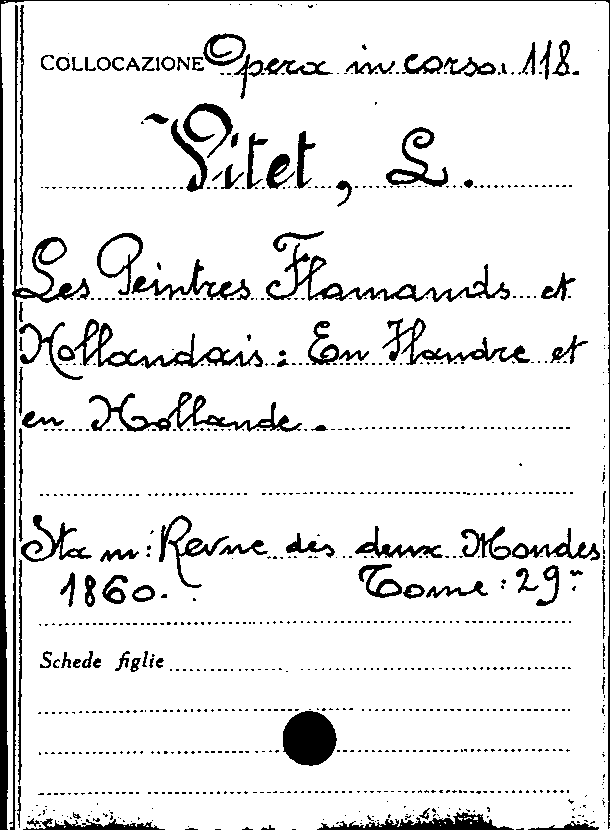 COLLOCAZIONE Opera in corso. 118.
Vitet, L.
Les Peintres Flamands et
Hollandais: En Flandre et
en Hollande.
Sta in: Revue des deux Mondes
1860. Tome: 29.
Schede figlie